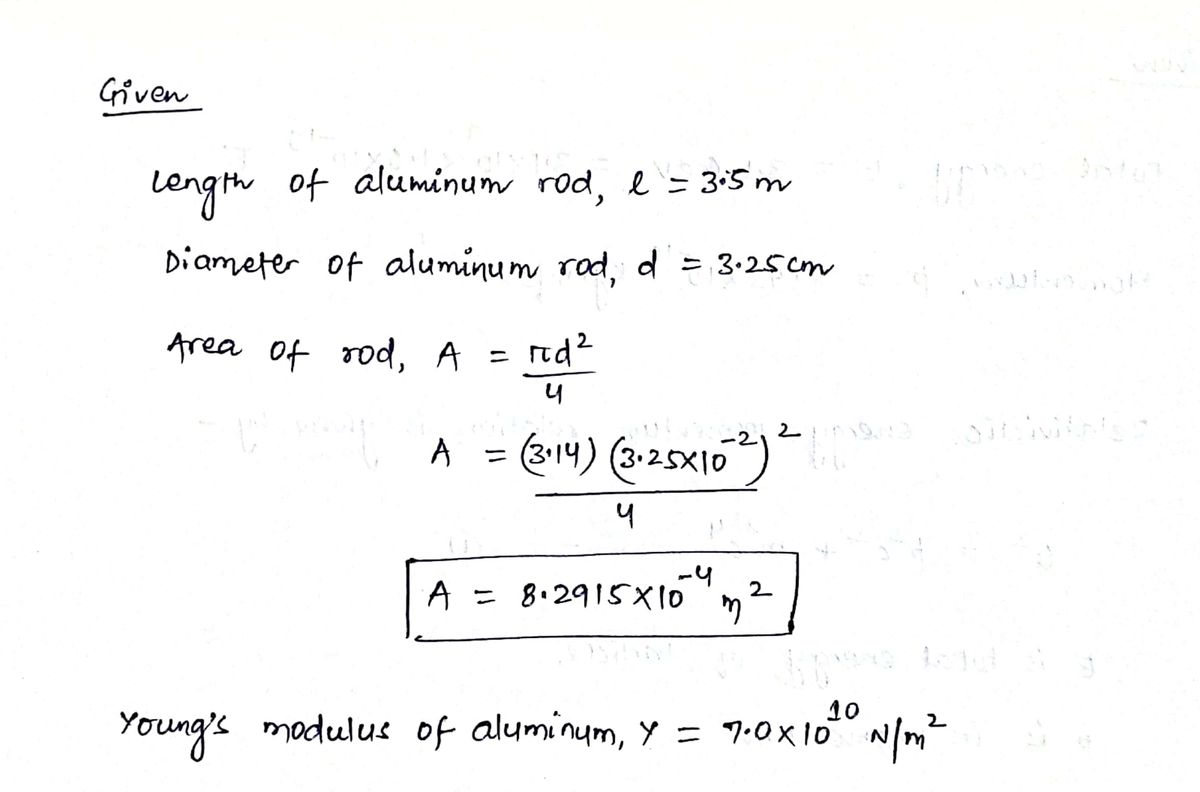 Given
Length of aluminum rod, l = 3.5 m
Diameter of aluminum rod, d = 3.25 cm
Area of rod, A = πd²/4
A = (3.14) (3.25×10⁻²)²/4
A = 8.2915×10⁻⁴ m²
Young's modulus of aluminum, Y = 7.0×10¹⁰ N/m²